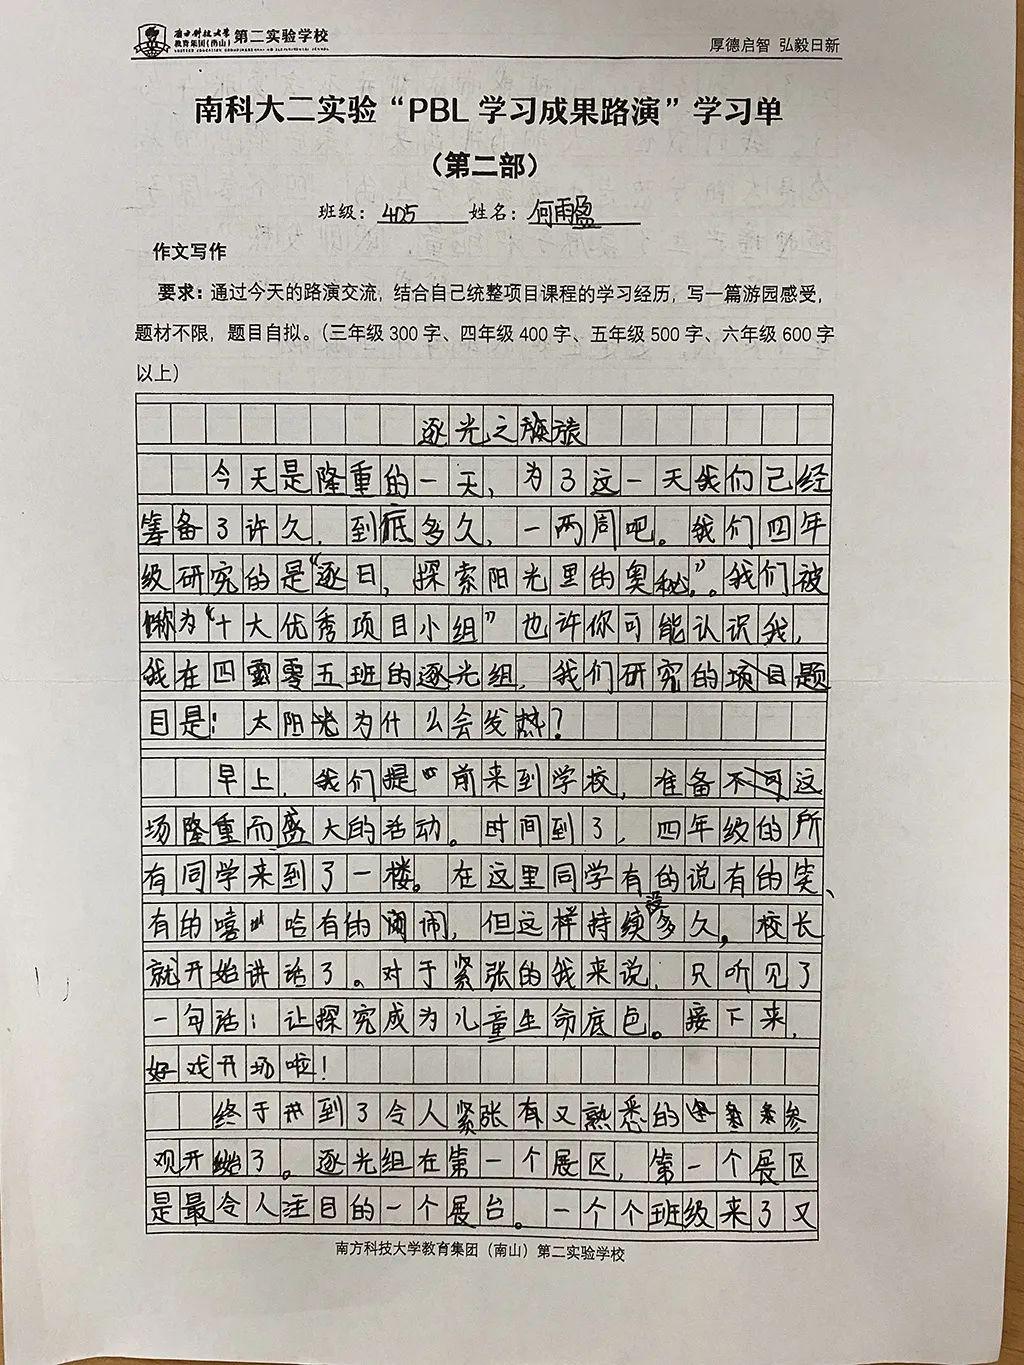 南方科技大学
教育集团(南山) 第二实验学校
厚德启智 弘毅日新
南科大二实验“PBL 学习成果路演”学习单
（第二部）
班级：405 姓名：何雨盈
作文写作
要求：通过今天的路演交流，结合自己统整项目课程的学习经历，写一篇游园感受，
题材不限，题目自拟。（三年级 300 字、四年级 400 字、五年级 500 字、六年级 600 字
以上）
逐光之旅
今天是隆重的一天，为了这一天我们己经
筹备了许久，到底多久，一两周吧。我们四年
级研究的是“逐日，探索阳光里的奥秘”。我们被
称为“十大优秀项目小组”也许你可能认识我，
我在四零五班的逐光组，我们研究的项目题
目是：太阳光为什么会发热？
早上，我们提前来到学校，准备这
场隆重而盛大的活动。时间到了，四年级的所
有同学来到了一楼。在这里同学有的说有的笑、
有的嘻哈有的闹，但这样持续没多久，校长
就开始讲话了。对于紧张的我来说，只听见了
一句话：让探究成为儿童生命底色。接下来，
好戏开场啦！
终于到了令人紧张有又熟悉的参
观开始了。逐光组在第一个展区，第一个展区
是最令人注目的一个展台。一个个班级来了又
南方科技大学教育集团（南山）第二实验学校